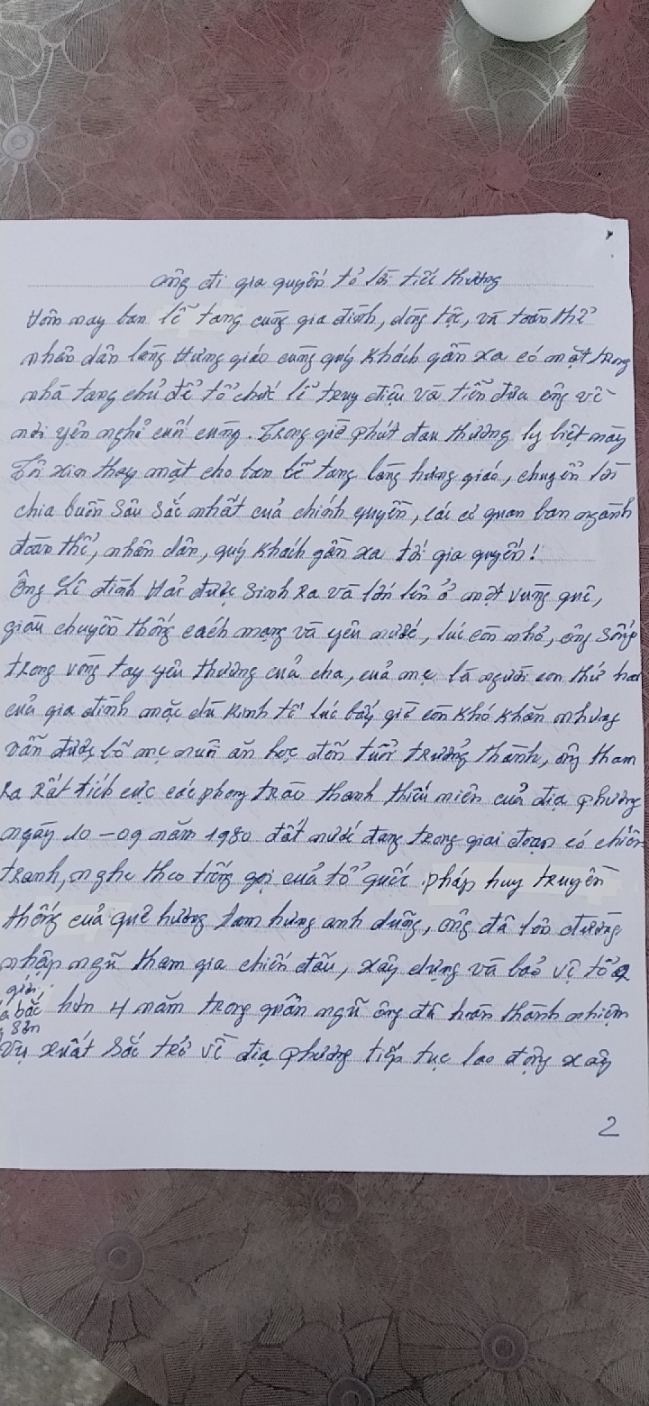 ông đi gia quyến tỏ lời tiếc thương
Hôm nay ban lễ tang cùng gia đình, dòng tộc, và toàn thể
nhân dân làng Hưng giáo cùng quý khách gần xa có mặt trong
nhà tang chủ để tổ chức lễ truy điệu và tiễn đưa ông về
nơi yên nghỉ cuối cùng. Trong giờ phút đau thương ly biệt này
Tôi xin thay mặt cho ban lễ tang làng hưng giáo, chuyển lời
chia buồn sâu sắc nhất của chính quyền, các cơ quan ban ngành
đoàn thể, nhân dân, quý khách gần xa tới gia quyến!
Ông Lê đình Hải được sinh ra và lớn lên ở một vùng quê,
giàu chuyền thống cách mạng và yêu nước, lúc còn nhỏ, ông sống
trong vòng tay yêu thương của cha, của mẹ là người con thứ hai
của gia đình mặc dù kinh tế lúc bấy giờ còn khó khăn nhưng
vẫn được bố mẹ nuôi ăn học đến tuổi trưởng thành, ông tham
ra rất tích cực các phong trào thanh thiếu niên của địa phương
ngày 10-09 năm 1980 đất nước đang trong giai đoạn có chiến
tranh, nghe theo tiếng gọi của tổ quốc pháp huy truyền
thống của quê hương anh dũng, ông đã lên đường
nhập ngũ tham gia chiến đấu, xây dựng và bảo vệ tổ Q
giới
bắc hơn 4 năm trong quân ngũ ông đã hoàn thành nhiệm
sơn
vụ xuất sắc trở về địa phương tiếp tục lao động xây
2